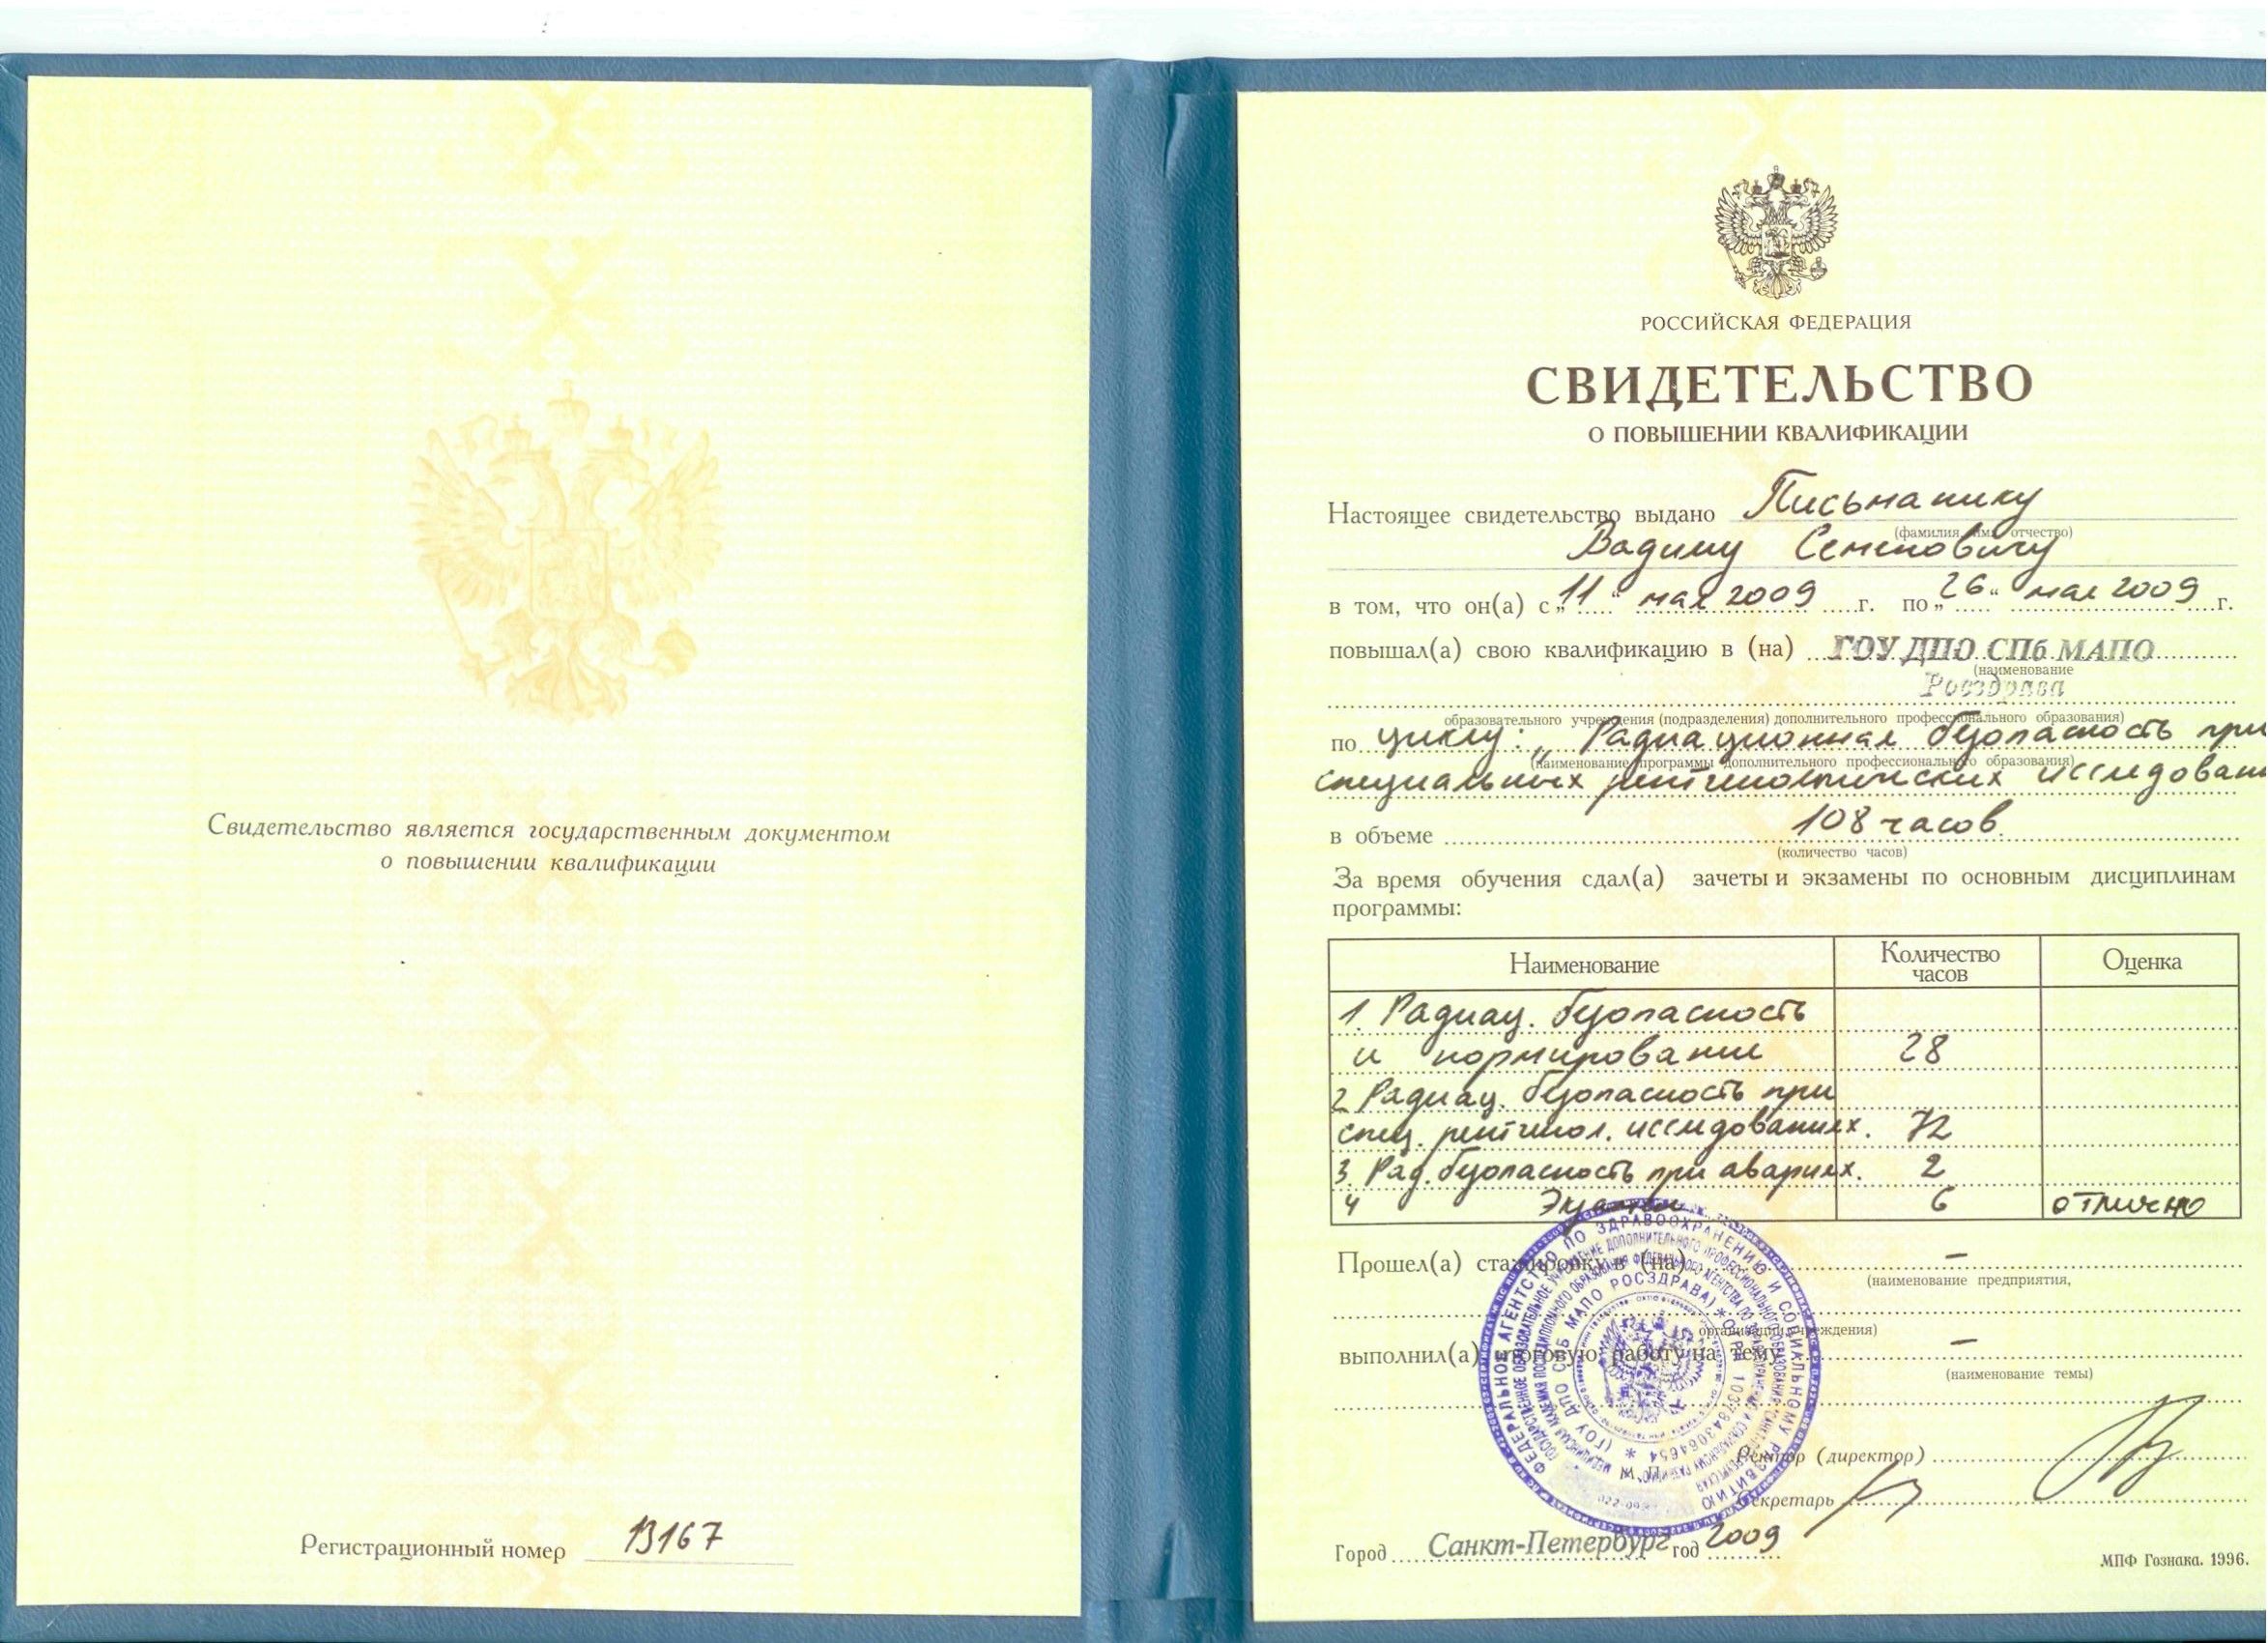 Свидетельство является государственным документом
о повышении квалификации
Регистрационный номер 13167
РОССИЙСКАЯ ФЕДЕРАЦИЯ
СВИДЕТЕЛЬСТВО
О ПОВЫШЕНИИ КВАЛИФИКАЦИИ
Настоящее свидетельство выдано Письманику
(фамилия, имя, отчество)
Вадиму Семеновичу
в том, что он(а) с „11“ мая 2009 г. по „26“ мая 2009 г.
повышал(а) свою квалификацию в (на) ГОУ ДПО СПб МАПО
(наименование
Росздрава
образовательного учреждения (подразделения) дополнительного профессионального образования)
по циклу: „Радиационная безопасность при
(наименование программы дополнительного профессионального образования)
специальных рентгенологических исследован
в объеме 108 часов.
(количество часов)
За время обучения сдал(а) зачеты и экзамены по основным дисциплинам
программы:
Наименование Количество часов Оценка
1. Радиац. безопасность
и нормирование 28
2 Радиац. безопасность при
спец. рентгенол. исследованиях. 72
3. Рад. безопасность при авариях. 2
4 Экзамен 6 отлично
Прошел(а) стажировку в (на) –
(наименование предприятия,
организации, учреждения)
выполнил(а) итоговую работу на тему –
(наименование темы)
Ректор (директор)
М.П.
Секретарь
Город Санкт-Петербург год 2009
МПФ Гознака. 1996.
ФЕДЕРАЛЬНОЕ АГЕНТСТВО ПО ЗДРАВООХРАНЕНИЮ И СОЦИАЛЬНОМУ РАЗВИТИЮ
(ГОУ ДПО СПБ МАПО РОСЗДРАВА) * ОГРН 1037843064654 *